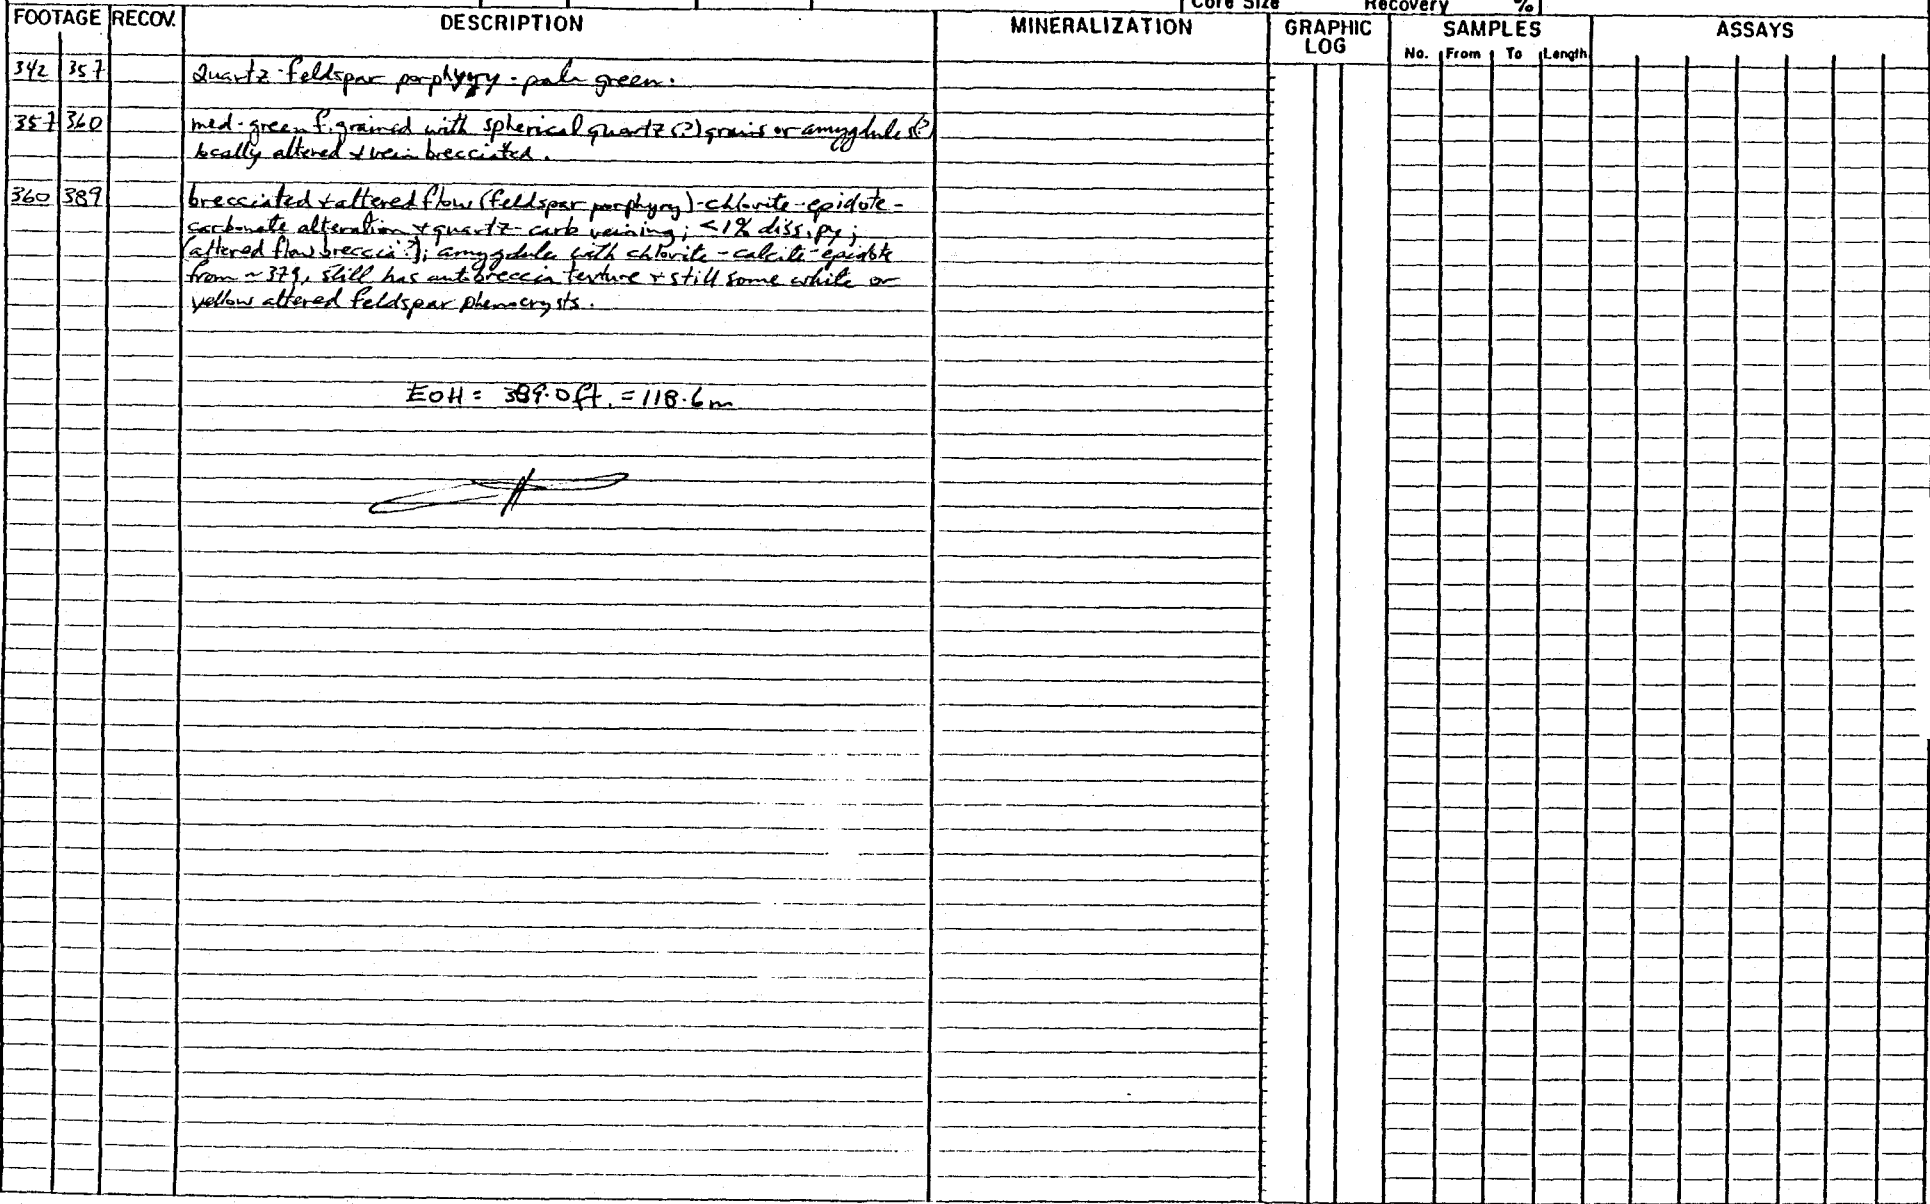 Core Size Recovery %
FOOTAGE RECOV. DESCRIPTION MINERALIZATION GRAPHIC LOG SAMPLES ASSAYS
No. From To Length
342 357 Quartz-feldspar porphyry - pale green.
357 360 med-green f. grained with spherical quartz (?) grains or amygdules (?)
locally altered + vein brecciated.
360 389 brecciated + altered flow (feldspar porphyry) - chlorite-epidote-
carbonate alteration + quartz-carb veining; <1% diss. py;
(altered flow breccia?); amygdules with chlorite-calcite-epidote
from ~379, still has autobreccia texture + still some white or
yellow altered feldspar phenocrysts.
EOH = 389.0 ft. = 118.6m